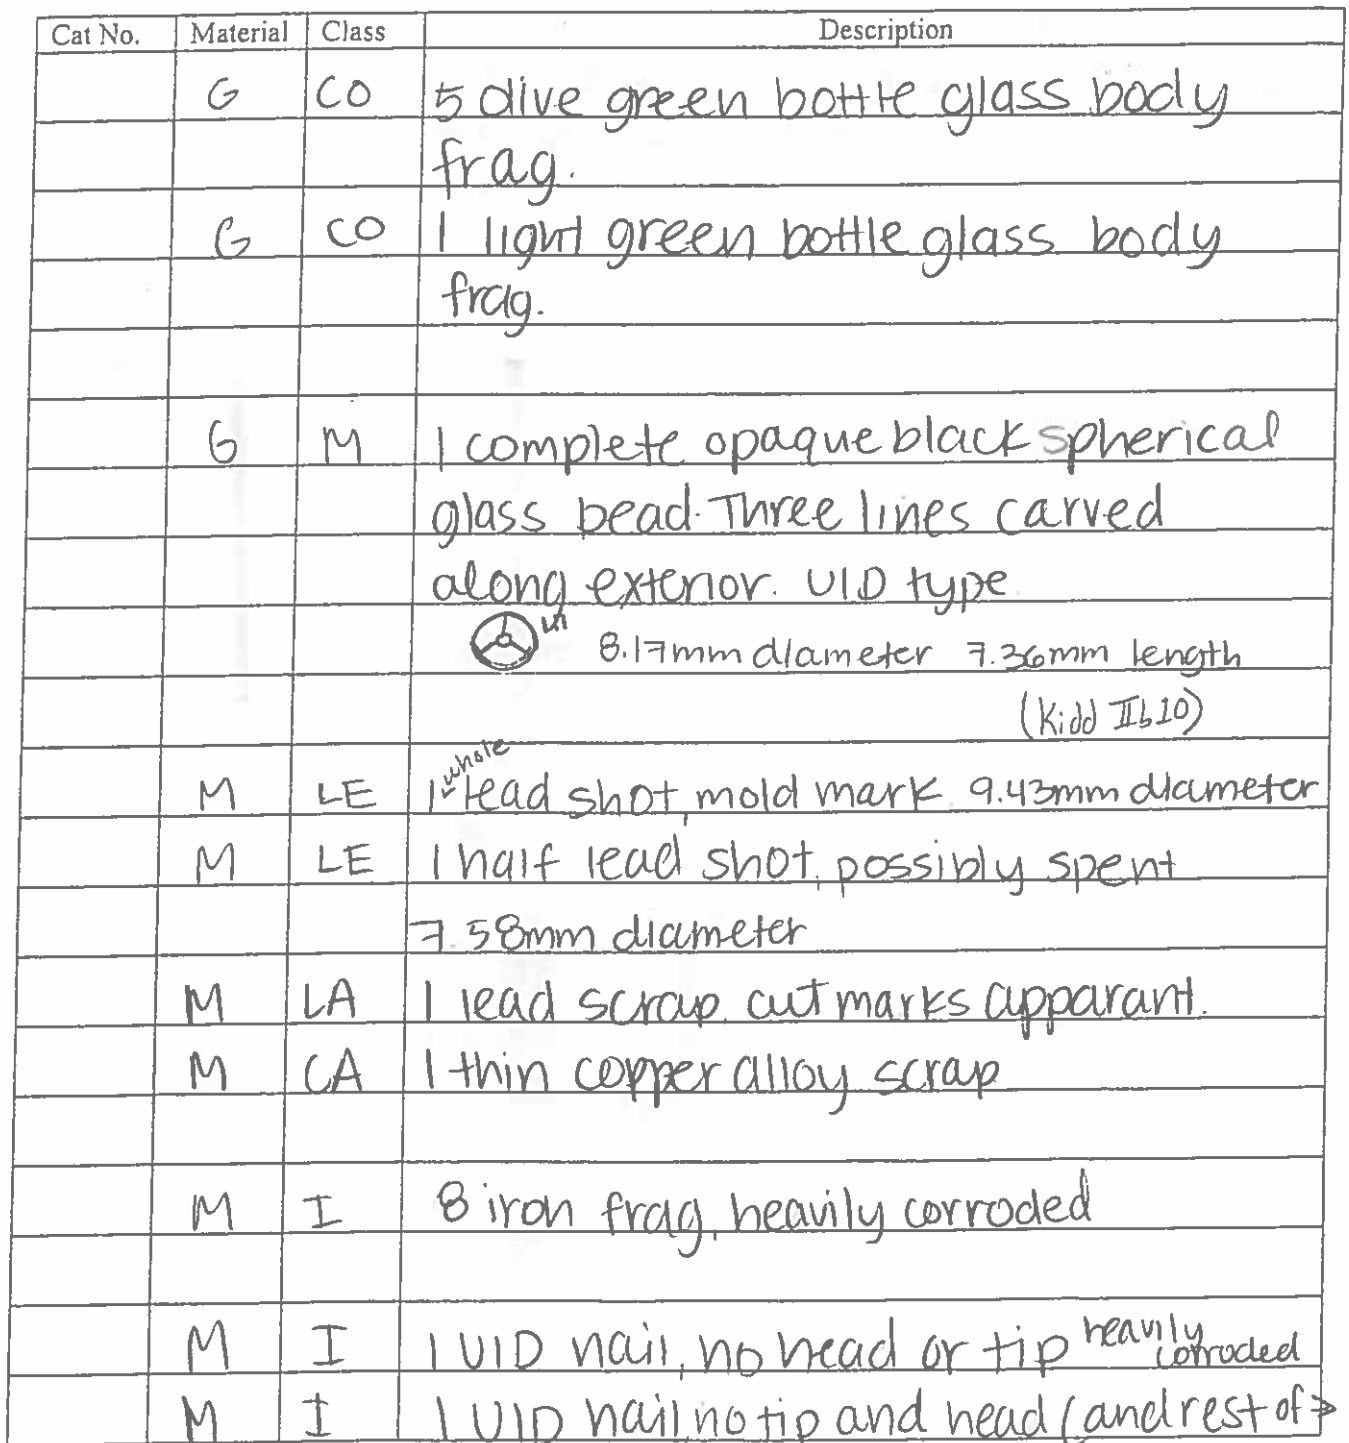 Cat No. Material Class Description
G CO 5 olive green bottle glass body
frag.
G CO 1 light green bottle glass body
frag.
G M 1 complete opaque black spherical
glass bead. Three lines carved
along exterior. UID type
8.17mm diameter 7.36mm length
(Kidd IIb10)
whole
M LE 1 lead shot, mold mark 9.43mm diameter
M LE 1 half lead shot, possibly spent
7.58mm diameter
M LA 1 lead scrap, cut marks apparant.
M CA 1 thin copper alloy scrap
M I 8 iron frag, heavily corroded
M I 1 UID nail, no head or tip heavily corroded
M I 1 UID nail, no tip and head (and rest of →